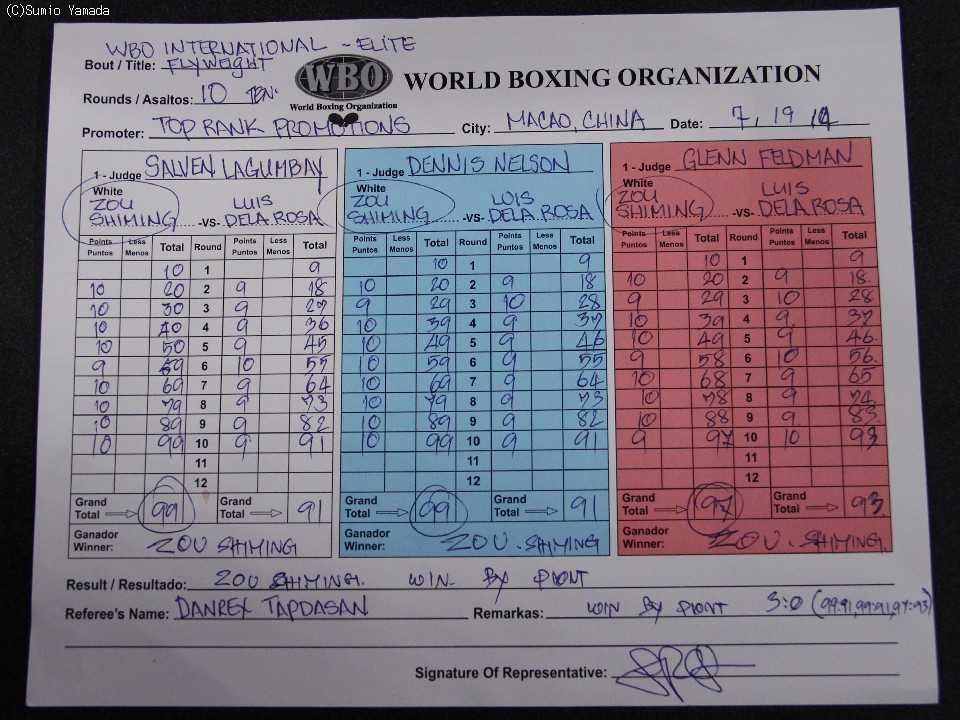 (C)Sumio Yamada
WBO INTERNATIONAL - ELITE
Bout / Title: FLYWEIGHT
WBO
World Boxing Organization
WORLD BOXING ORGANIZATION
Rounds / Asaltos: 10 TEN.
Promoter: TOP RANK PROMOTIONS City: MACAO, CHINA Date: 7, 19 14
1 - Judge SALVEN LAGUMBAY
White
ZOU SHIMING -VS- LUIS DELA ROSA
Points Puntos Less Menos Total Round Points Puntos Less Menos Total
10 1 9
10 20 2 9 18
10 30 3 9 27
10 40 4 9 36
10 50 5 9 45
9 59 6 10 55
10 69 7 9 64
10 79 8 9 73
10 89 9 9 82
10 99 10 9 91
11
12
Grand Total 99 Grand Total 91
Ganador
Winner: ZOU SHIMING
1 - Judge DENNIS NELSON
White
ZOU SHIMING -VS- LUIS DELA ROSA
Points Puntos Less Menos Total Round Points Puntos Less Menos Total
10 1 9
10 20 2 9 18
9 29 3 10 28
10 39 4 9 37
10 49 5 9 46
10 59 6 9 55
10 69 7 9 64
10 79 8 9 73
10 89 9 9 82
10 99 10 9 91
11
12
Grand Total 99 Grand Total 91
Ganador
Winner: ZOU . SHIMING
1 - Judge GLENN FELDMAN
White
ZOU SHIMING -VS- LUIS DELA ROSA
Points Puntos Less Menos Total Round Points Puntos Less Menos Total
10 1 9
10 20 2 9 18.
9 29 3 10 28
10 39 4 9 37
10 49 5 9 46.
9 58 6 10 56.
10 68 7 9 65
10 78 8 9 74
10 88 9 9 83.
9 97 10 10 93
11
12
Grand Total 97 Grand Total 93.
Ganador
Winner: ZOU . SHIMING.
Result / Resultado: ZOU SHIMING. WIN BY PIONT
Referee's Name: DANREX TAPDASAN Remarkas: WIN BY PIONT 3:0 (99:91,99:91,97:93)
Signature Of Representative: